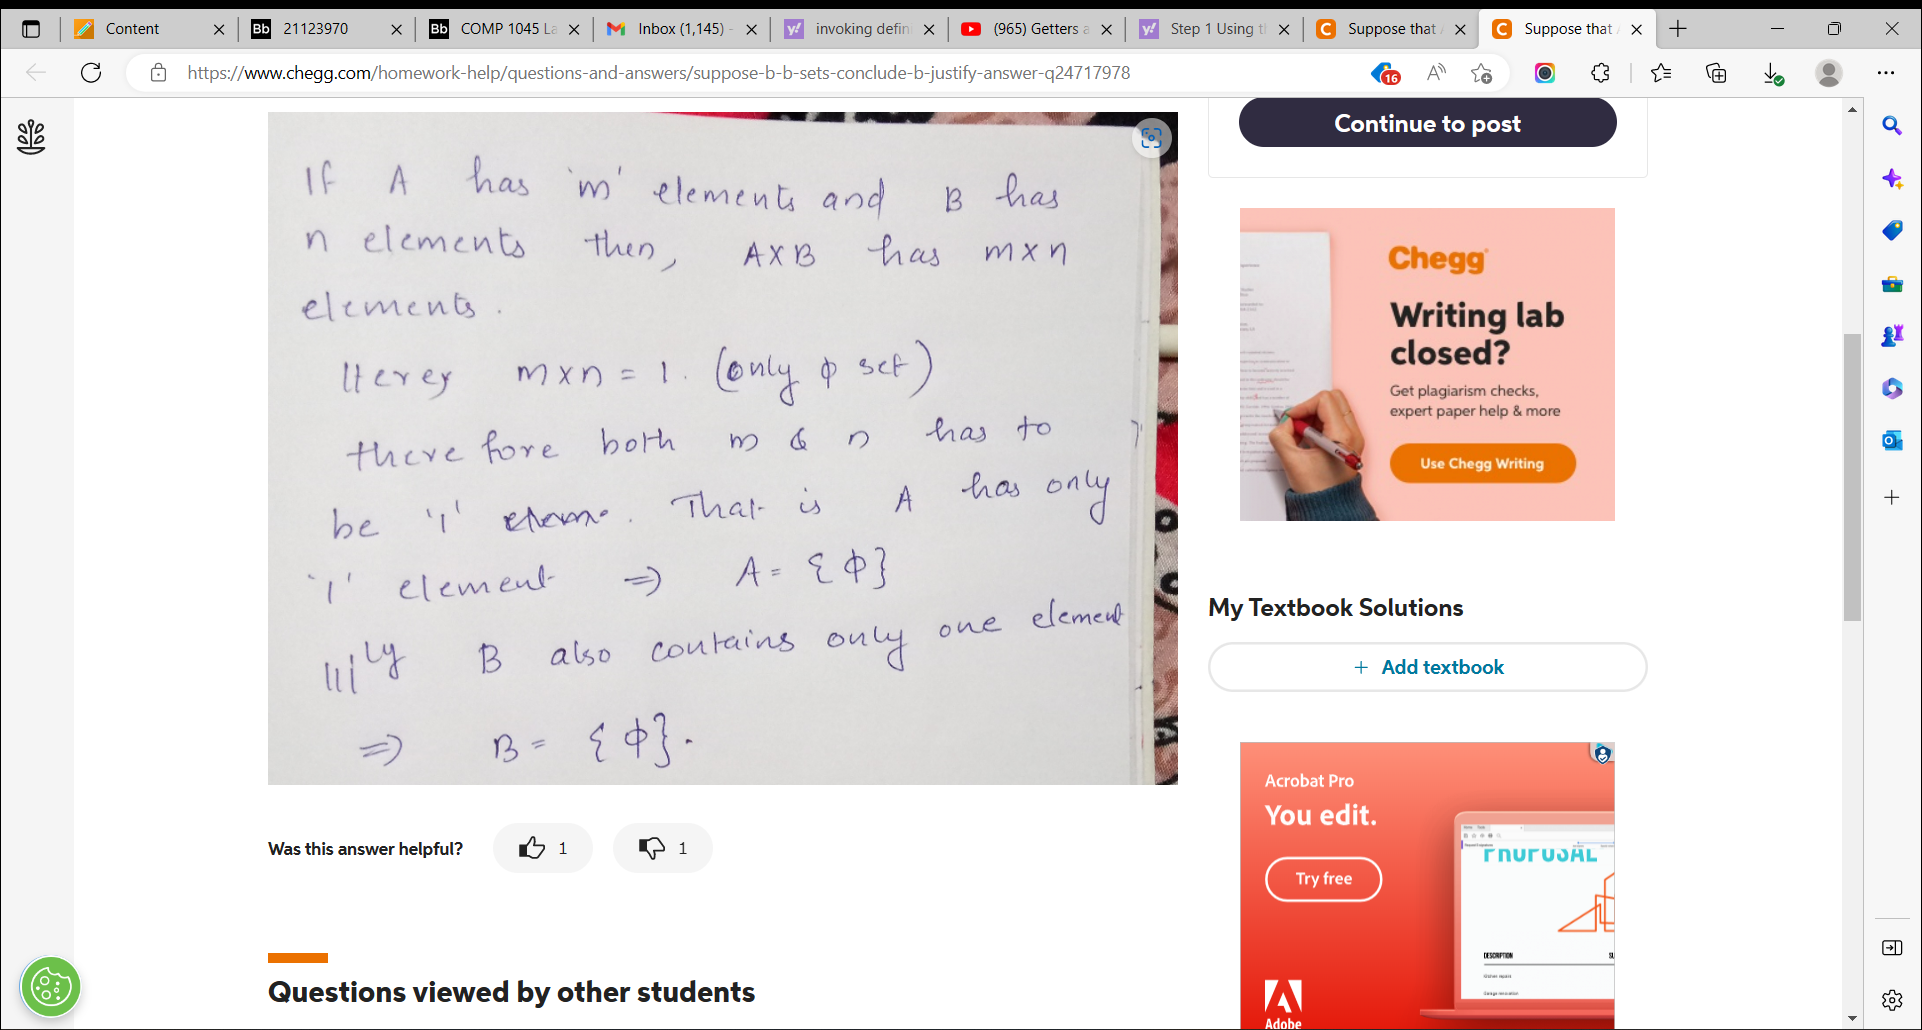 Content
21123970
COMP 1045 La
Inbox (1,145) -
invoking defin
(965) Getters a
Step 1 Using t
Suppose that
Suppose that
https://www.chegg.com/homework-help/questions-and-answers/suppose-b-b-sets-conclude-b-justify-answer-q24717978
16
If A has 'm' elements and B has
n elements then, A×B has m×n
elements.
m×n = 1. (only ϕ set)
there fore both m & n has to
be '1' . That is A has only
'1' element ⇒ A = {ϕ}
|||ly B also contains only one element
⇒ B = {ϕ}.
Was this answer helpful?
1
1
Questions viewed by other students
Continue to post
Chegg
Writing lab
closed?
Get plagiarism checks,
expert paper help & more
Use Chegg Writing
My Textbook Solutions
+ Add textbook
Acrobat Pro
You edit.
Try free
PROPOSAL
DESCRIPTION
Adobe